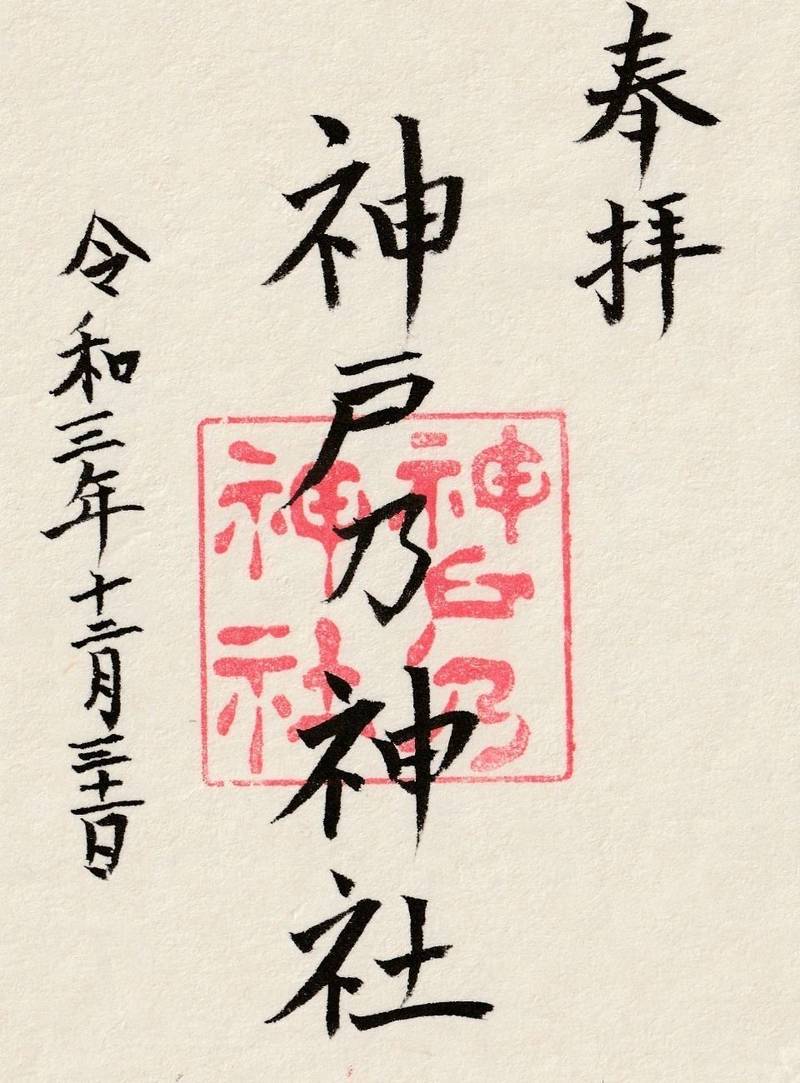 奉拝
神戸乃神社
神戸乃神社
令和三年十二月三十一日